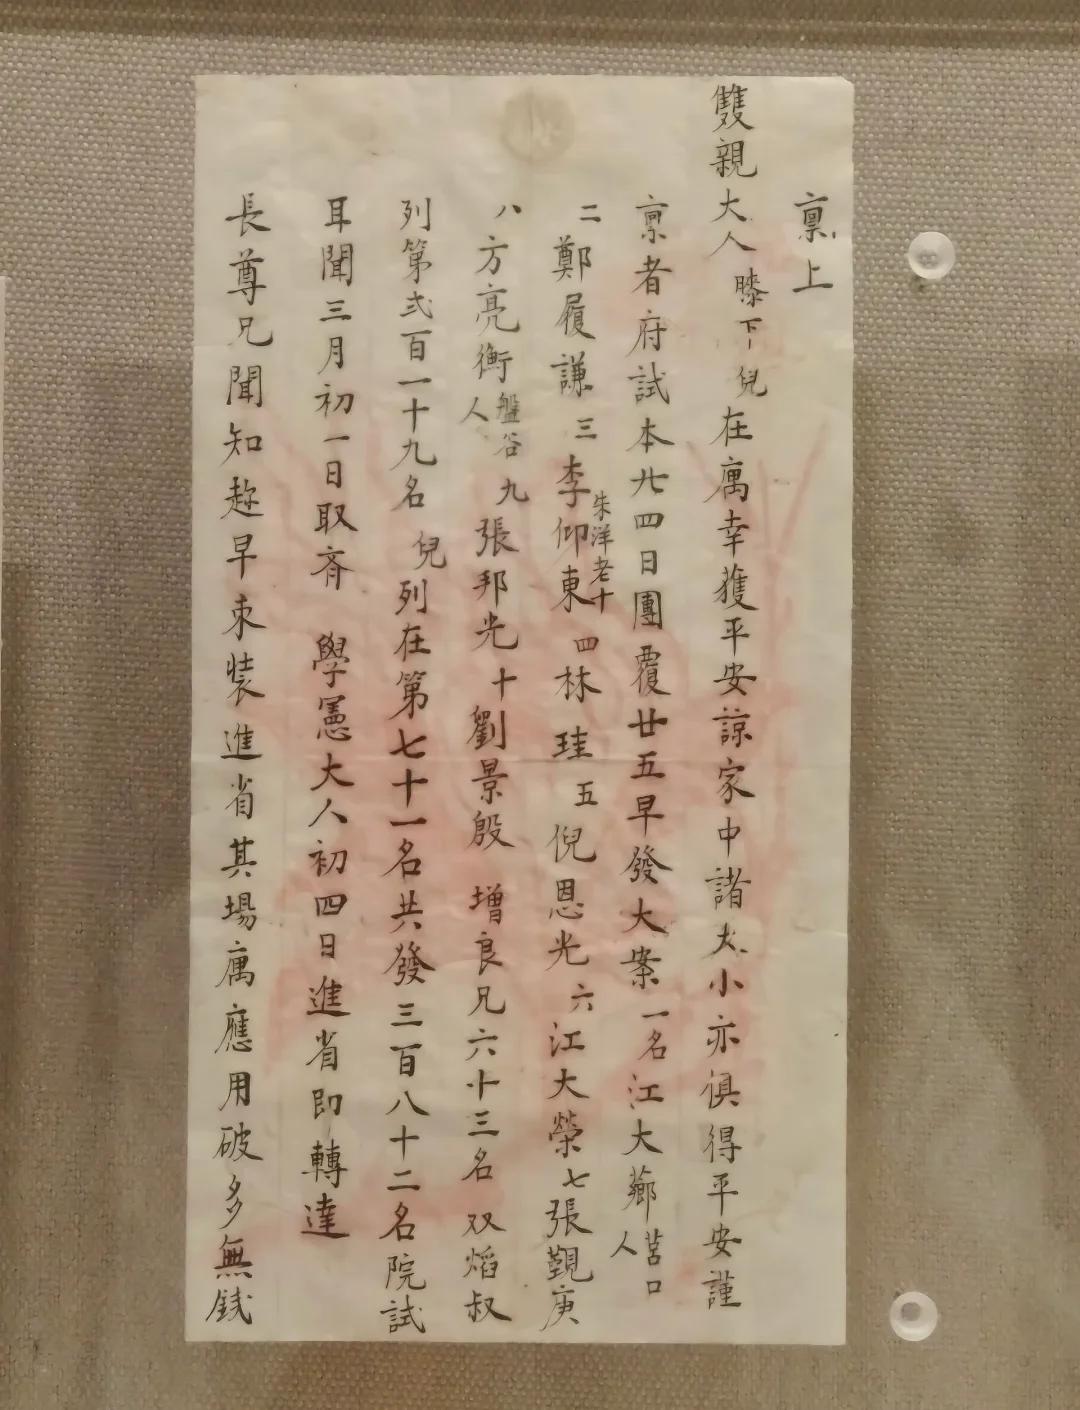 稟上
雙親大人膝下兒在寓幸獲平安諒家中諸大小亦俱得平安謹
稟者府試本廿四日團覆廿五早發大案一名江大薌莒口人
二鄭履謙三李仰東朱洋老十四林珪五倪恩光六江大榮七張覲庚
八方亮衡盤谷人九張邦光十劉景殷增良兄六十三名双焰叔
列第弍百一十九名兒列在第七十一名共發三百八十二名院試
耳聞三月初一日取齊學憲大人初四日進省即轉達
長尊兄聞知趂早束裝進省其場寓應用破多無錢